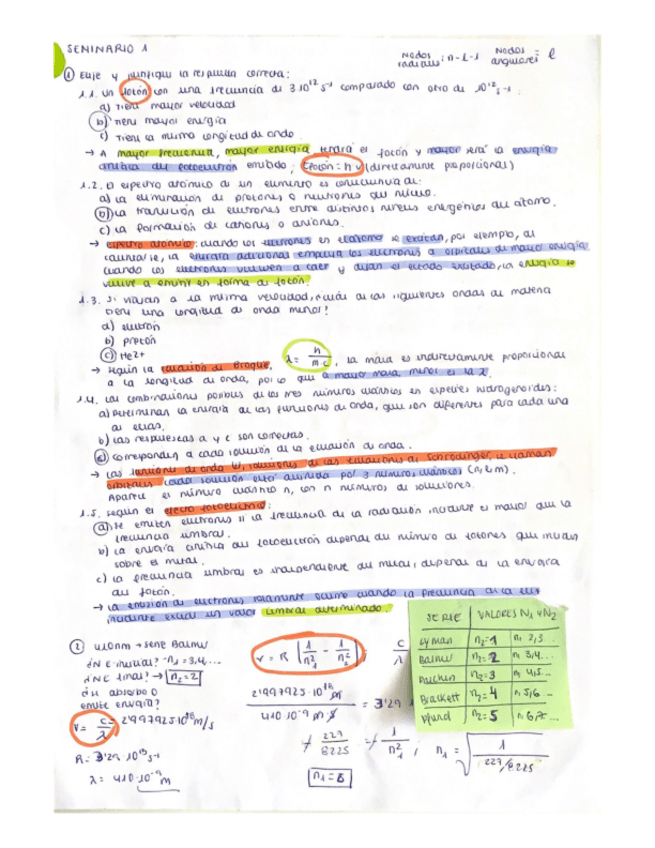 SEMINARIO 1
Nodos radiales: n-l-1 Nodos angulares = l
① Elije y justifique la respuesta correcta:
1.1. Un fotón con una frecuencia de 3·10¹² s⁻¹ comparado con otro de 10¹² s⁻¹:
a) Tiene mayor velocidad
b) Tiene mayor energía
c) Tiene la misma longitud de onda.
→ A mayor frecuencia, mayor energía tendrá el fotón y mayor será la energía
cinética del fotoelectrón emitido; Efotón = h ν (directamente proporcional)
1.2. El espectro atómico de un elemento es consecuencia de:
a) La eliminación de protones o neutrones del núcleo.
b) La transición de electrones entre distintos niveles energéticos del átomo.
c) La formación de cationes o aniones.
→ Espectro atómico: cuando los electrones en el átomo se excitan, por ejemplo, al
calentarse, la energía adicional empuja los electrones a orbitales de mayor energía
cuando los electrones vuelven a caer y dejan el estado excitado, la energía se
vuelve a emitir en forma de fotón.
1.3. Si viajan a la misma velocidad, ¿cuál de las siguientes ondas de materia
tiene una longitud de onda menor?
a) electrón
b) protón
c) He2+
→ Según la ecuación de Broglie, λ = h / m·c, la masa es indirectamente proporcional
a la longitud de onda, por lo que a mayor masa, menor es la λ.
1.4. Las combinaciones posibles de los tres números cuánticos en especies hidrogenoides:
a) Determinan la energía de las funciones de onda, que son diferentes para cada una
de ellas.
b) Las respuestas a y c son correctas.
c) Corresponden a cada solución de la ecuación de onda.
→ Las funciones de onda Ψ, soluciones de las ecuaciones de Schrodinger, se llaman
orbitales cada solución está definida por 3 números cuánticos (n, l, m).
Aparece el número cuántico n, con n números de soluciones.
1.5. Según el efecto fotoeléctrico:
a) Se emiten electrones si la frecuencia de la radiación incidente es mayor que la
frecuencia umbral.
b) La energía cinética del fotoelectrón depende del número de fotones que incidan
sobre el metal.
c) La frecuencia umbral es independiente del metal, depende de la energía
del fotón.
→ La emisión de electrones solamente ocurre cuando la frecuencia de la
incidente excede un valor umbral determinado.
② 410nm → serie Balmer
¿N E inicial? - n₁ = 3,4...
¿N E final? → n₂ = 2
¿Se absorbe o
emite energía?
V = c/λ c = 2'997925·10⁸ m/s
R = 3'29·10¹⁵ s⁻¹
λ = 410·10⁻⁹ m
ν = R [1/n₁² - 1/n₂²]; c/λ
2'997925·10⁸ m / 410·10⁻⁹ m·s = 3'29
≠ 229/8225 ≠ 1/n₁²; n₁ = √(1 / 229/8225)
n₁ = 6
SERIE VALORES N1 y N2
Lyman n₂=1 n₁ 2,3...
Balmer n₂=2 n₁ 3,4...
Paschen n₂=3 n₁ 4,5...
Brackett n₂=4 n₁ 5,6...
Pfund n₂=5 n₁ 6,7...